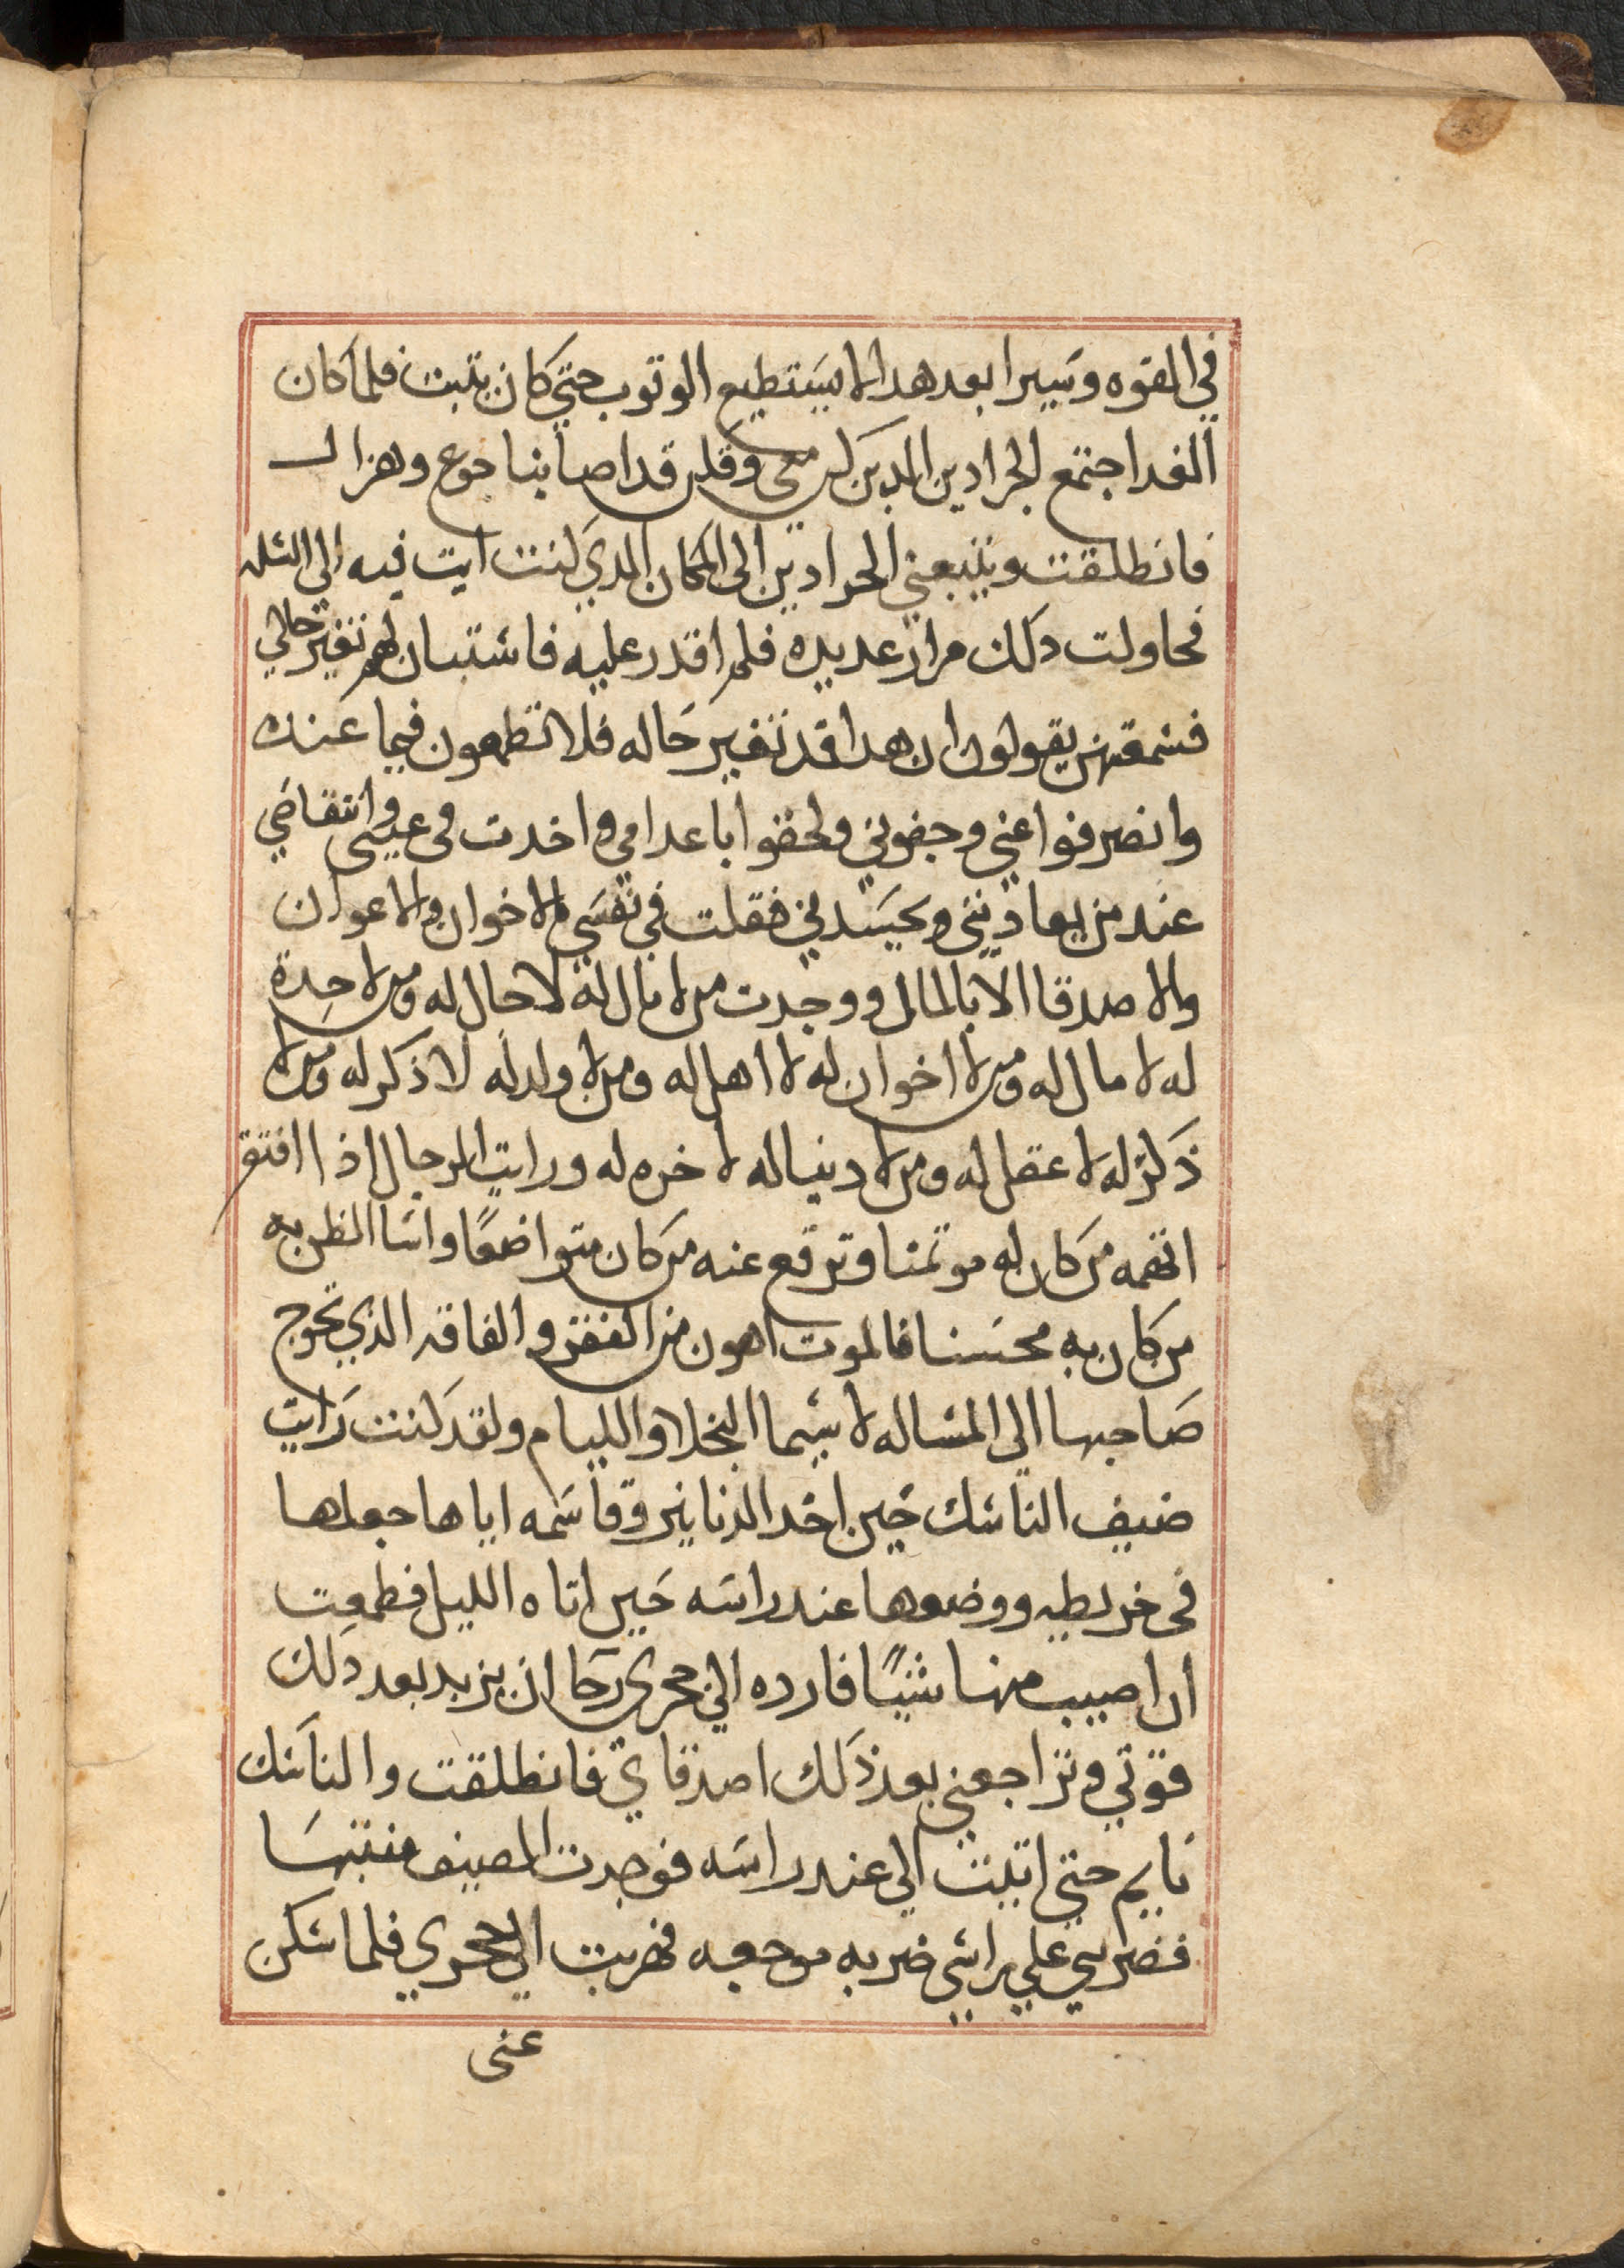 في القوه وسيرا بعد هدا لا يستطيع الوتوب حتي كان يتبت فلما كان
الغد اجتمع الجرادين الدين كن معي وقلن قد اصابنا جوع وهزال
فانطلقت ويتبعني الجرادين الى المكان الدي كنت ايت فيه الى السله
فحاولت دلك مرار عديده فلم اقدر عليه فاستبان لهم تغير حالي
فسمعتهن يقولون ان هدا قد تغير حاله فلا تطمعون فيما عنده
وانصرفوا عني وجفوني ولحقوا باعداي واخدت في عيبي وانتقاضي
عند من يعاديني ويحسدني فقلت في نفسي ما الاخوان ولا الاعوان
والاصدقا الا بالمال ووجدت من لا مال له لا حال له ومن لا حدة
له لا مال له ومن لا اخوان له لا اهل له ومن لا ولد له لا ذكر له ومن لا
ذكر له لا عقل له ومن لا دنيا له لا اخره له ورايت الرجال اذا افتقر
اتهمه من كان له موتمنا وترفع عنه من كان متواضعًا واسا الظن به
من كان به محسنا فالموت اهون من الفقر والفاقه الذي تحوج
صاحبها الى المساله لا سيما البخلا والليام ولقد كنت رايت
ضيف الناسك حين اخد الدنانير وقاسمه اياها جعلها
في خريطه ووضعوها عند راسه حين اتاه الليل فطمعت
ان اصيب منها شيًا فارده الي جحري رجا ان يزيد بعد دلك
قوتي وتراجعني بعد ذلك اصدقاي فانطلقت والناسك
نايم حتي اتيت الي عند راسه فوجدت الضيف منتبها
فضربني علي راسي ضربه موجعه فهربت الي جحري فلما سكن
عنى